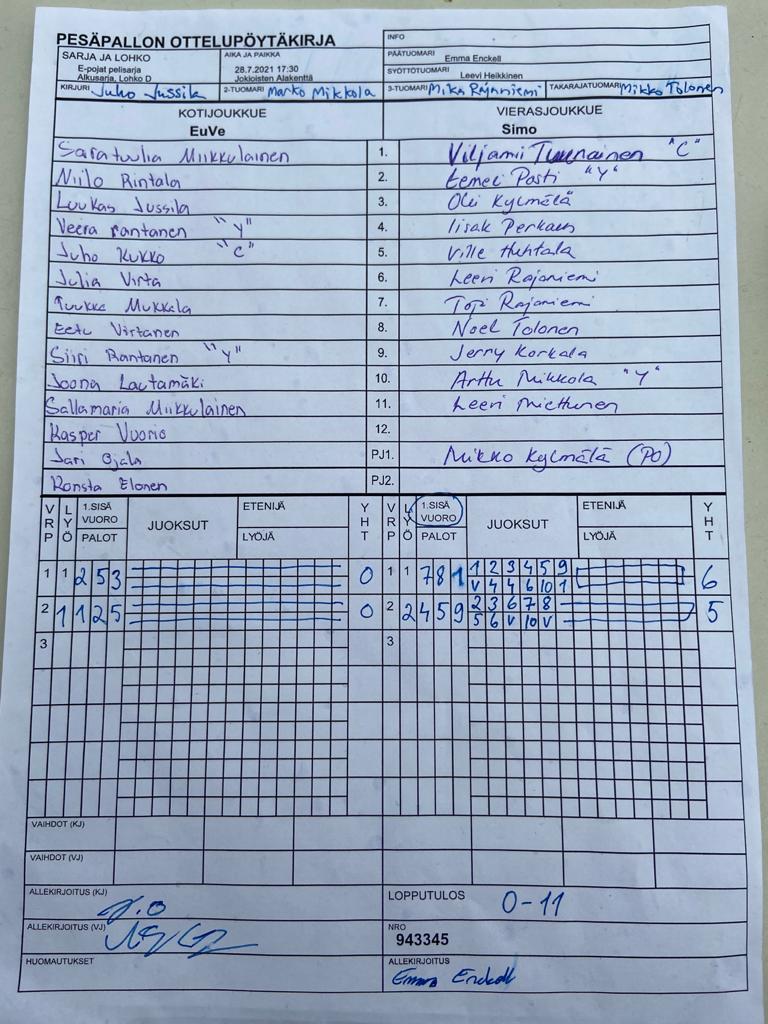 PESÄPALLON OTTELUPÖYTÄKIRJA
INFO
SARJA JA LOHKO
E-pojat pelisarja
Alkusarja, Lohko D
AIKA JA PAIKKA
28.7.2021 17:30
Jokioisten Alakenttä
PÄÄTUOMARI Emma Enckell
SYÖTTÖTUOMARI Leevi Heikkinen
KIRJURI Juho Jussila
2-TUOMARI Marko Mikkola
3-TUOMARI Mika Rajaniemi
TAKARAJATUOMARI Mikko Tolonen
KOTIJOUKKUE
EuVe
VIERASJOUKKUE
Simo
Saratuulia Miikkulainen 1. Viljami "C"
Niilo Rintala 2. Eemeli Posti "Y"
Luukas Jussila 3. Oli Kylmälä
Veera Rantanen "Y" 4. Iisak
Juho Kukko "C" 5. Ville Huhtala
Julia Virta 6. Leevi Rajaniemi
Tuukka Mukkala 7. Topi Rajaniemi
Eetu Virtanen 8. Noel Tolonen
Siiri Rantanen "Y" 9. Jerry Korkala
Joona Lautamäki 10. Arttu Mikkola "Y"
Sallamaria Miikkulainen 11. Leevi Miettunen
Kasper Vuorio 12.
Jari Ojala PJ1. Mikko Kylmälä (PO)
Konsta Elonen PJ2.
VRP LYÖ 1.SISÄ VUORO PALOT JUOKSUT ETENIJÄ LYÖJÄ YHT
VRP LYÖ 1.SISÄ VUORO PALOT JUOKSUT ETENIJÄ LYÖJÄ YHT
1 1 2 5 3 0
1 1 7 8 1 1 2 3 4 5 9 6
V 4 4 6 10 1
2 1 1 2 5 0
2 2 4 5 9 2 3 6 7 8 5
5 6 V 10 V
3 3
VAIHDOT (KJ)
VAIHDOT (VJ)
ALLEKIRJOITUS (KJ) J.O
LOPPUTULOS 0-11
ALLEKIRJOITUS (VJ)
NRO
943345
HUOMAUTUKSET
ALLEKIRJOITUS
Emma Enckell